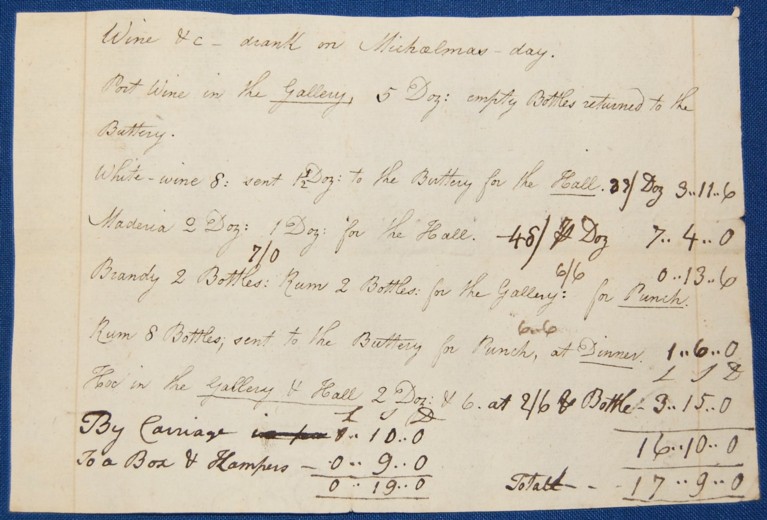 Wine &c - drank on Michælmas - day.
Port Wine in the Gallery, 5 Doz: empty Bottles returned to the
Buttery.
White-wine 8: sent 1½ Doz: to the Buttery for the Hall. 33/ Doz 3..11..6
Maderia 2 Doz: 1 Doz: for the Hall. 48/ ⅌ Doz 7..4..0
7/0 6/6 0..13..6
Brandy 2 Bottles: Rum 2 Bottles: for the Gallery: for Punch.
6..6
Rum 8 Bottles; sent to the Buttery for Punch, at Dinner. 1..6..0
L S D
Hoc in the Gallery & Hall 2 Doz: & 6. at 2/6 ⅌ Bottle - 3..15..0
L S D
By Carriage 0..10..0 16..10..0
To a Box & Hampers - 0..9..0
0..19..0 Totall - - 17..9..0